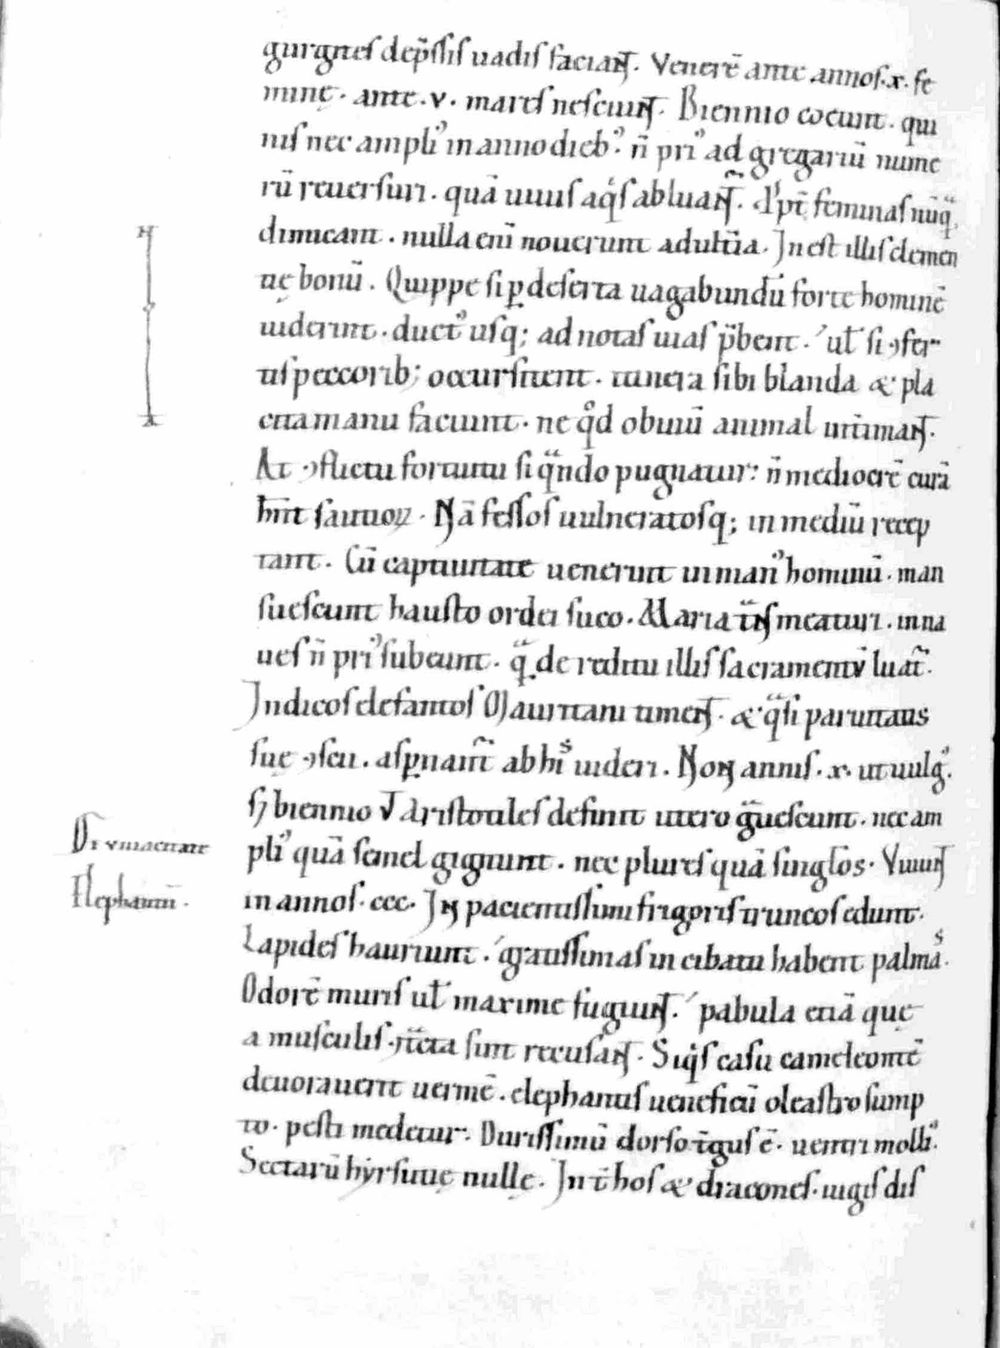 gurgites dep̄ssis uadis faciant. Venerē ante annos .x. fe
minę. ante .v. mares nesciunt. Biennio coeunt. qui
nis nec ampliꝰ in anno diebꝰ. n̄ priꝰ ad gregariū nume
rū reuersuri. quā uiuis aq̇s abluant̄. ꝓpt̄ feminas nūq̄
dimicant. nulla eni nouerunt adult̄ia. Inest illis clemen
tię bonū. Quippe si ꝑ deserta uagabundū forte hominē
uiderint. ductꝰ usq; ad notas uias p̄bent. ul̄ si ꝯfer
tis peccorib; occursitent. itinera sibi blanda & pla
cita manu faciunt. ne q̊d obuiū animal int̄imant.
At ꝯflictu fortuitu si q̄ndo pugnatur: n̄ mediocrē curā
hn̄t sautioꝝ. Nā fessos uulneratosq; in mediū recep
tant. Cū captiuitate uenerint in manꝰ hominū. man
suescunt hausto ordei suco. Maria t̄nsmeaturi. in na
ues n̄ priꝰ subeunt. q̄ de reditu illis sacramentū luat̄.
Indicos elefantos Mauritani timent. & q̄si paruitatis
suę ꝯscii. aspnant̄ ab his uideri. Non annis .x. ut uulgꝰ.
sꝫ biennio ut Aristotiles definit utero ḡuescunt. nec am
pliꝰ quā semel gignunt. nec plures quā singlos. Viuunt
in annos .ccc. Inpacientissimi frigoris truncos edunt.
Lapides hauriunt. gratissimas in cibatu habent palmas.
Odorē muris ul̄ maxime fugiunt. pabula etiā que
a musculis ꝯt̄cta sint recusant. Siq̇s casu cameleontē
deuorauerit uermē. elephantus ueneficū oleastro sump
to. pesti medetur. Durissimū dorso t̄gus ē. uentri molliꝰ.
Sectarū hyrsutię nullę. Int̄ hos & dracones. iugis dis
De viuacitate
Elephantū.